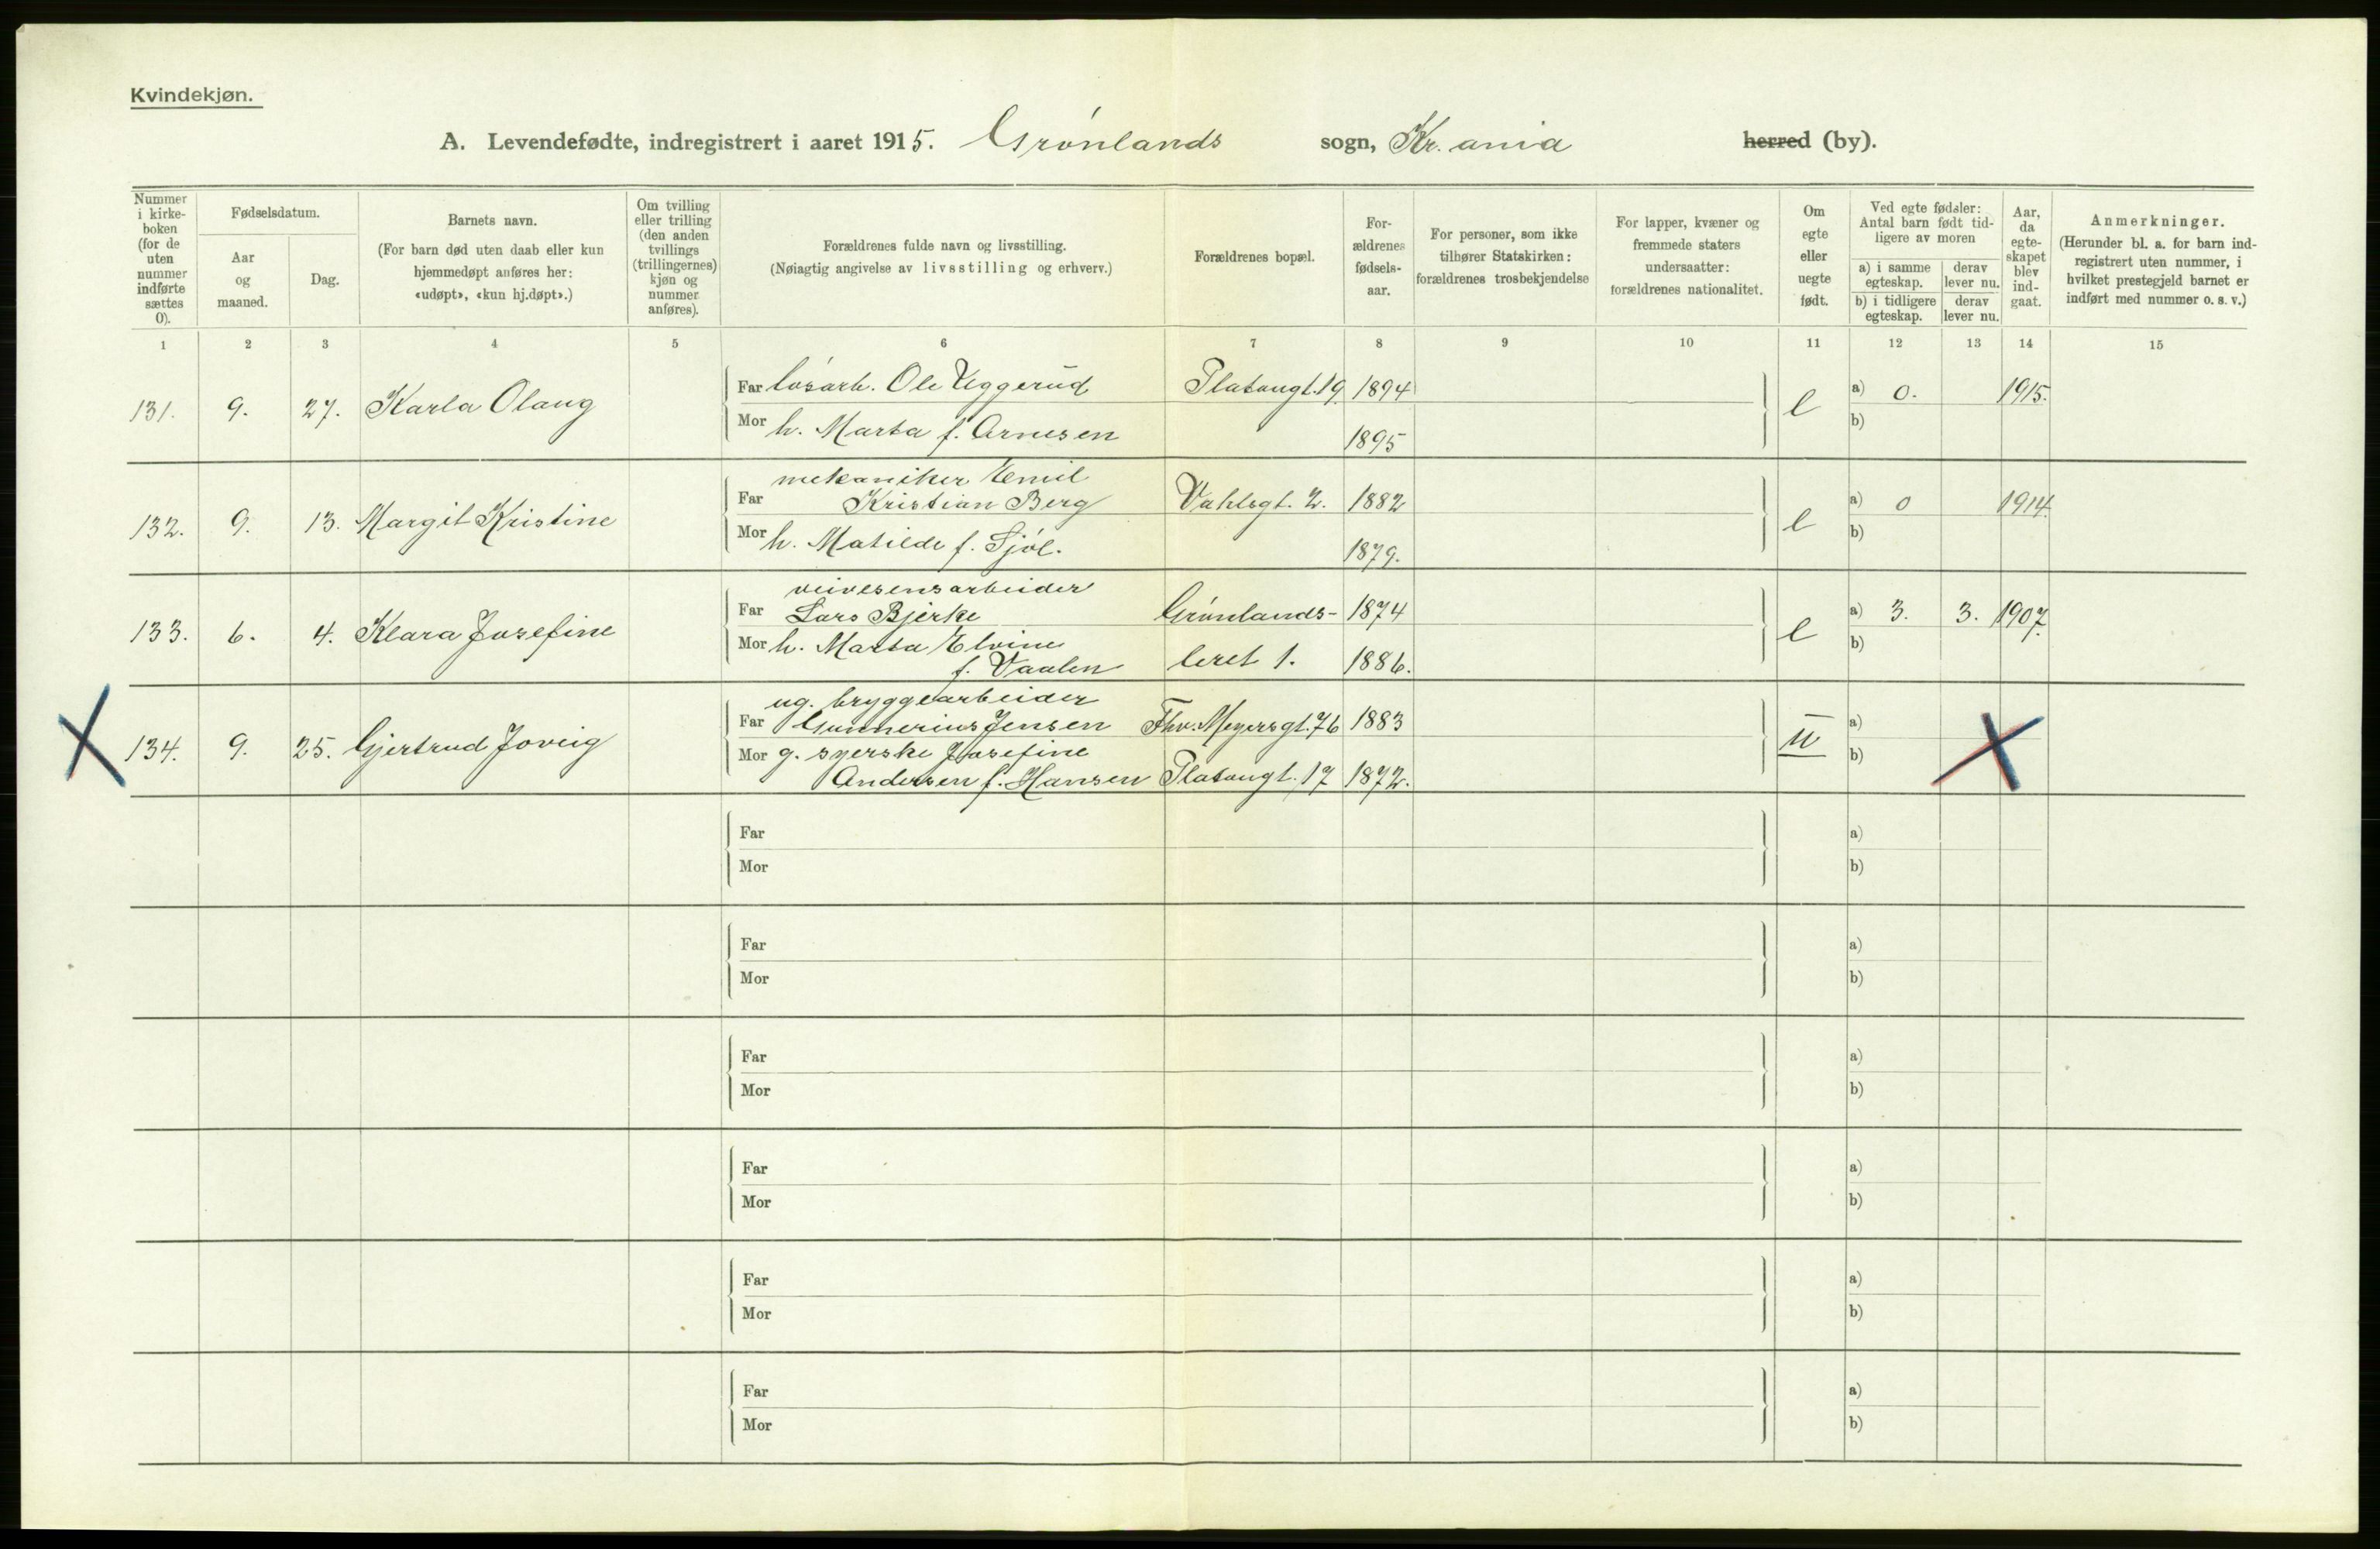 Kvindekjøn.
A. Levendefødte, indregistrert i aaret 1915. Grønlands sogn, Kr.ania herred (by).
Nummer i kirke-boken (for de uten nummer indførte sættes 0).
Fødselsdatum.
Aar og maaned.
Dag.
Barnets navn.
(For barn død uten daab eller kun hjemmedøpt anføres her: «udøpt», «kun hj.døpt».)
Om tvilling eller trilling (den anden tvillings (trillingernes) kjøn og nummer anføres).
Forældrenes fulde navn og livsstilling.
(Nøiagtig angivelse av livsstilling og erhverv.)
Forældrenes bopæl.
For-ældrenes fødsels-aar.
For personer, som ikke tilhører Statskirken: forældrenes trosbekjendelse
For lapper, kvæner og fremmede staters undersaatter: forældrenes nationalitet.
Om egte eller uegte født.
Ved egte fødsler: Antal barn født tid-ligere av moren
a) i samme egteskap. derav lever nu.
b) i tidligere egteskap. derav lever nu.
Aar, da egte-skapet blev ind-gaat.
Anmerkninger.
(Herunder bl. a. for barn ind-registrert uten nummer, i hvilket prestegjeld barnet er indført med nummer o. s. v.)
1 2 3 4 5 6 7 8 9 10 11 12 13 14 15
Far løsarb. Ole Uggerud Platougt. 19. 1894
131. 9. 27. Karla Olaug e a) 0. 1915.
Mor h. Marta f. Arnesen 1895 b)
mekaniker Emil
Far Kristian Berg Vahlsgt. 2. 1882 a) 0 1914.
132. 9. 13. Margit Kristine e
Mor h. Matilde f. Sjöl. 1879. b)
veivesensarbeider
Far Lars Bjerke Grønlands- 1874 a) 3. 3. 1907.
133. 6. 4. Klara Josefine e
Mor h. Marta Elvine b)
f. Vaalen leret 1. 1886.
ug. bryggearbeider
Far Gunnerius Jensen Thv. Meyersgt. 76 1883 a)
134. 9. 25. Gjertrud Joveig u
Mor g. syerske Josefine b)
Andersen f. Hansen Platougt. 17 1872.
Far a)
Mor b)
Far a)
Mor b)
Far a)
Mor b)
Far a)
Mor b)
Far a)
Mor b)
Far a)
Mor b)